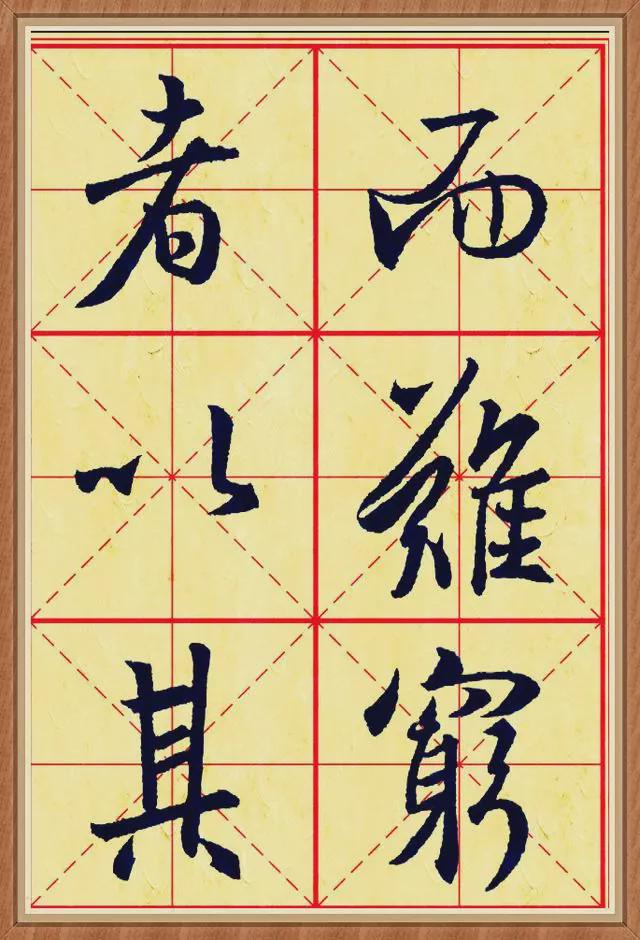 而難窮
者以其